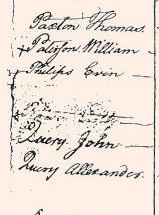 Paxton Thomas
Patterson William
Philips Evin
Query John
Query Allexander